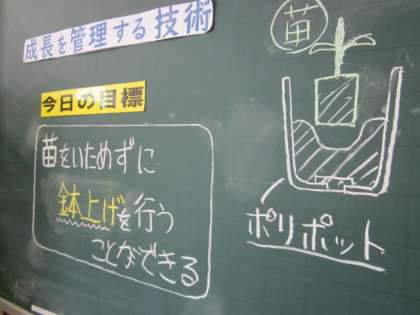 成長を管理する技術
今日の目標
苗をいためずに
鉢上げを行う
ことができる
苗
ポリポット